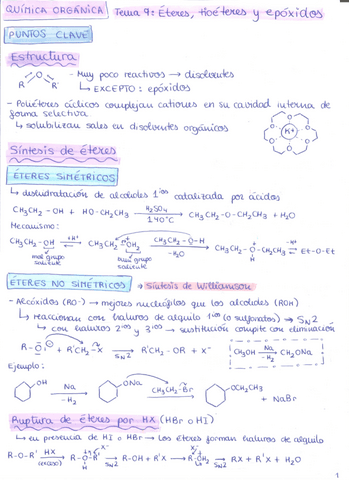 QUÍMICA ORGÁNICA Tema 9: Éteres, tioéteres y epóxidos
PUNTOS CLAVE
Estructura
R O R' - Muy poco reactivos → disolventes
↳ EXCEPTO: epóxidos
- Poliéteres cíclicos complejan cationes en su cavidad interna de
forma selectiva
↳ solubilizan sales en disolventes orgánicos
K+
Síntesis de éteres
ÉTERES SIMÉTRICOS
↳ deshidratación de alcoholes 1ºˢ catalizada por ácidos
CH₃CH₂-OH + HO-CH₂CH₃ H₂SO₄ 140ºC → CH₃CH₂-O-CH₂CH₃ + H₂O
Mecanismo:
CH₃CH₂-OH +H⁺ → CH₃CH₂ OH₂ CH₃CH₂-O-H -H₂O → CH₃CH₂-O-CH₂CH₃ -H⁺ → Et-O-Et
H
mal grupo saliente buen grupo saliente
ÉTERES NO SIMÉTRICOS → Síntesis de Williamson
- Alcóxidos (RO⁻) → mejores nucleófilos que los alcoholes (ROH)
↳ reaccionan con haluros de alquilo 1ºˢ (o sulfonatos) → SN2
↳ con haluros 2ºˢ y 3ºˢ → sustitución compite con eliminación
R-O⁻ + R'CH₂-X SN2 → R'CH₂-OR + X⁻
CH₃OH Na -H₂ → CH₃ONa
Ejemplo:
OH Na -H₂ → ONa CH₃CH₂-Br → OCH₂CH₃ + NaBr
Ruptura de éteres por HX (HBr o HI)
↳ en presencia de HI o HBr → los éteres forman haluros de alquilo
R-O-R' HX (exceso) → R-O-R' H X⁻ SN2 → R-OH + R'X → R-OH₂ X⁻ SN2 → RX + R'X + H₂O
1